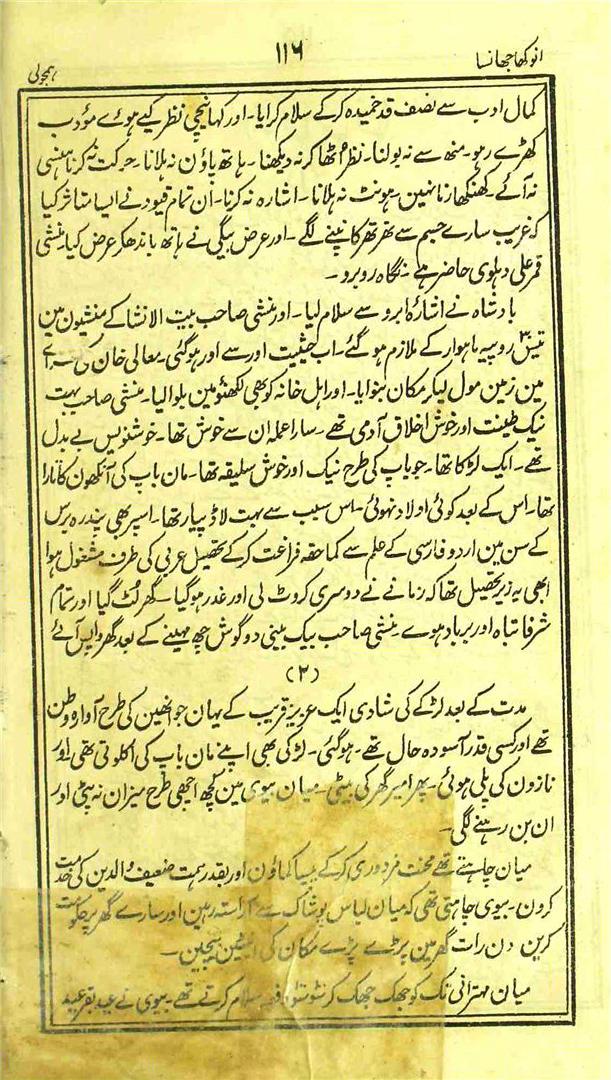 انوکھا جھانسا
۱۱۶
ہمجولی
کمال ادب سے نصف قد خمیدہ کر کے سلام کرایا۔ اور کہا نیچی نظر کیے ہوئے مؤدب
کھڑے رہو۔ منھ سے نہ بولنا۔ نظر اُٹھا کر نہ دیکھنا۔ ہاتھ پاؤن نہ ہلانا۔ حرکت نہ کرنا ہنسی
نہ آئے۔ کھنکھارنا نہین۔ ہونٹ نہ ہلانا۔ اشارہ نہ کرنا۔ ان تمام قیود نے ایسا متاثر کیا
کہ غریب سارے جسم سے تھر تھر کانپنے لگے۔ اور عرض بیگی نے ہاتھ باندھکر عرض کیا۔ منشی
قمر علی دہلوی حاضر ہے۔ نگاہ روبرو۔
بادشاہ نے اشارۂ ابرو سے سلام لیا۔ اور منشی صاحب بیت الانشا کے منشیون مین
تیس۳۰ روپیہ ماہوار کے ملازم ہو گئے۔ اب حیثیت اور سے اور ہو گئی۔ معالی خان کی سراے
مین زمین مول لیکر مکان بنوایا۔ اور اہل خانہ کو بھی لکھنؤ مین بلوالیا۔ منشی صاحب بہت
نیک طینت اور خوش اخلاق آدمی تھے۔ سارا عملہ ان سے خوش تھا۔ خوشنویس بے بدل
تھے۔ ایک لڑکا تھا۔ جو باپ کی طرح نیک اور خوش سلیقہ تھا۔ مان باپ کی آنکھون کا تارا
تھا۔ اس کے بعد کوئی اولاد نہوئی۔ اس سبب سے بہت لاڈ پیار تھا۔ اسپر بھی پندرہ برس
کے سن مین اردو فارسی کے علم سے کماحقہ فراغت کر کے تحصیل عربی کی طرف مشغول ہوا
ابھی یہ زیر تحصیل تھا کہ زمانے نے دوسری کروٹ لی اور غدر ہو گیا۔ گھر لٹ گیا اور تمام
شرفا تباہ اور برباد ہوے۔ منشی صاحب بیک بینی دو گوش چھ مہینے کے بعد گھر واپس آئے
(۲)
مدت کے بعد لڑکے کی شادی ایک عزیز قریب کے یہان جو انھین کی طرح آوارہ وطن
تھے اور کسی قدر آسودہ حال تھے۔ ہو گئی۔ لڑکی بھی اپنے مان باپ کی اکلوتی تھی اور
نازون کی پلی ہوئی۔ پھر امیر گھر کی بیٹی۔ میان بیوی مین کچھ اچھی طرح میزان نہ پٹی اور
ان بن رہنے لگی۔
میان چاہتے تھے محنت مزدوری کر کے پیسا کماؤن اور بقدر ہمت ضعیف والدین کی خدمت
کرون۔ بیوی چاہتی تھی کہ میان لباس پوشاک سے آراستہ رہین اور سارے گھر پر حکومت
کرین دن رات گھر مین پڑے پڑے مکان کی اینٹین بیچین۔
میان مہترانی تک کو جھک جھک کر سلام کرتے تھے۔ بیوی نے عید بقر عید